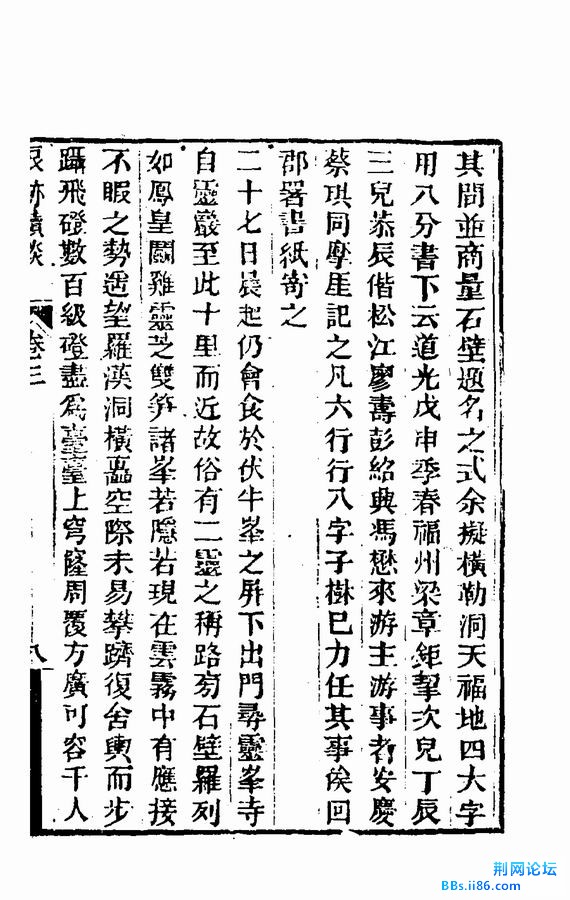 其間並商量石壁題名之式余擬橫勒洞天福地四大字
用八分書下云道光戊申季春福州梁章鉅挈次兒丁辰
三兒恭辰偕松江廖壽彭紹興馮懋來游主游事者安慶
蔡琪同摩厓記之凡六行行八字子樹已力任其事俟回
郡署書紙寄之
二十七日晨起仍會食於伏牛峯之屏下出門尋靈峯寺
自靈巖至此十里而近故俗有二靈之稱路旁石壁羅列
如鳳皇鬭雞靈芝雙笋諸峯若隱若現在雲霧中有應接
不暇之勢遥望羅漢洞橫嵓空際未易攀躋復舍輿而步
躡飛磴數百級磴盡爲臺臺上穹窿周覆方廣可容千人
浪跡續談 卷三 八
荆网论坛
BBs.ii86.com